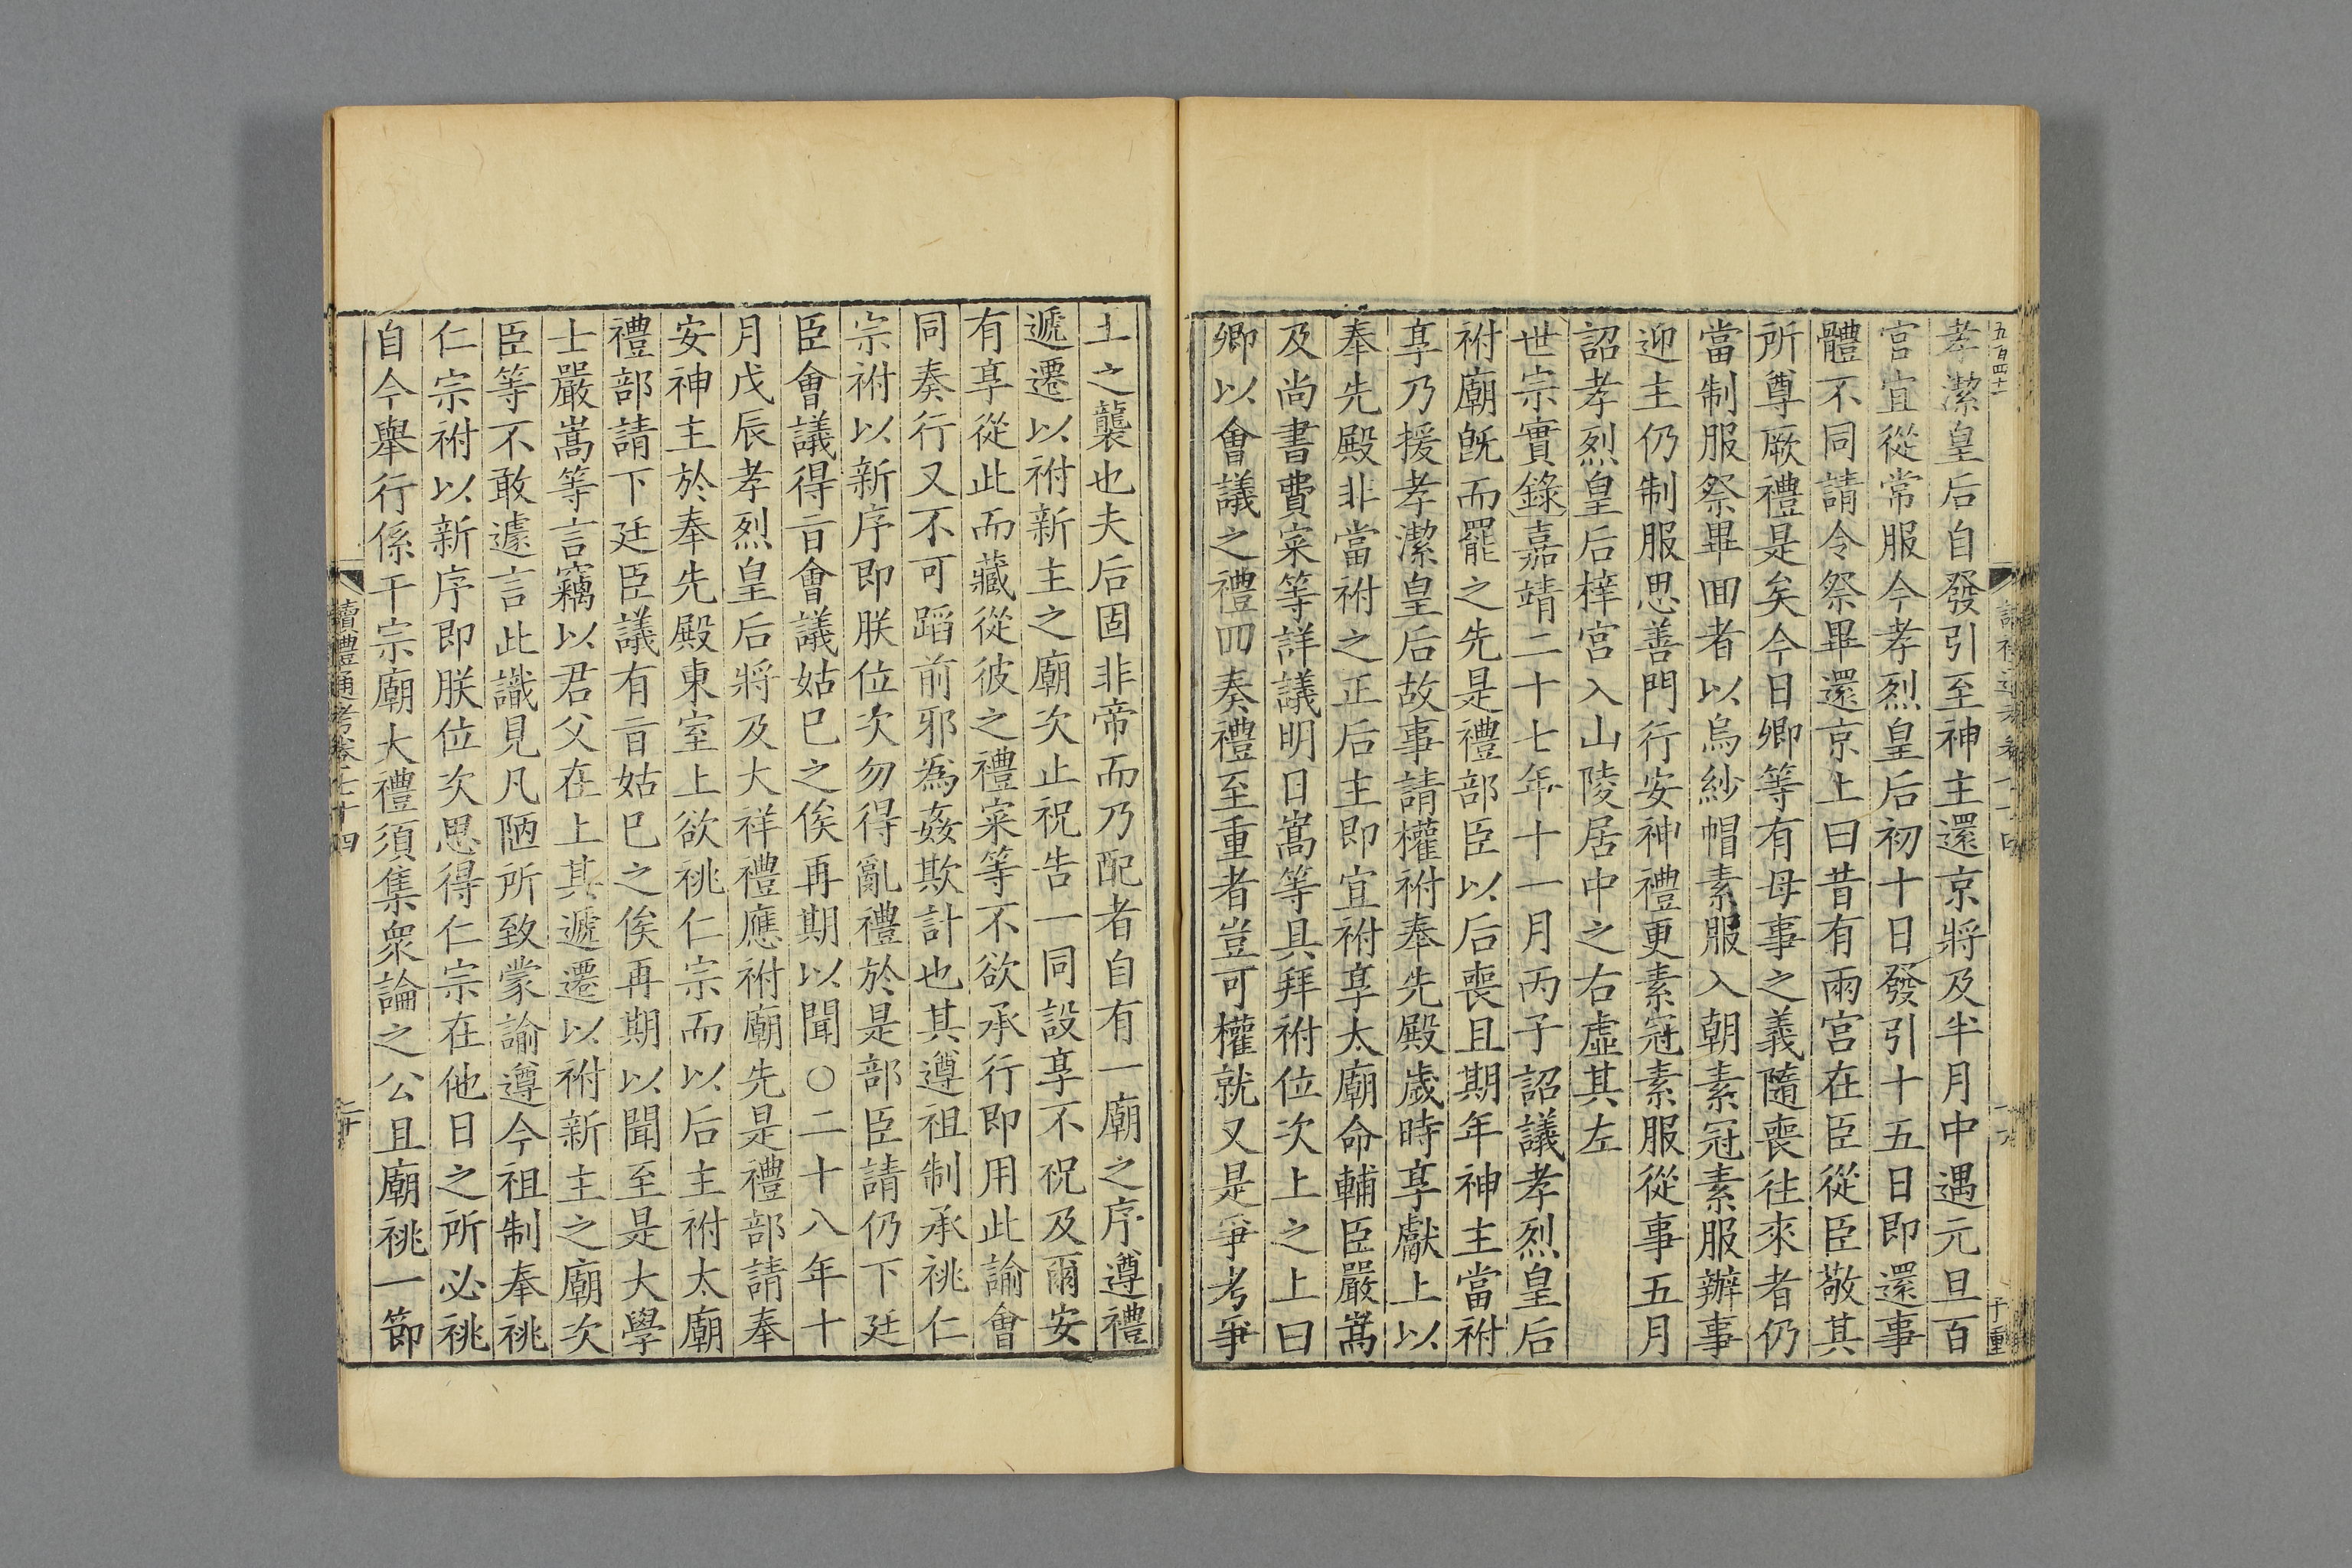 五百四十二
孝潔皇后自發引至神主還京將及半月中遇元旦百
官宜從常服今孝烈皇后初十日發引十五日即還事
體不同請令祭畢還京上曰昔有兩宮在臣從臣敬其
所尊厥禮是矣今日卿等有母事之義隨喪往來者仍
當制服祭畢囬者以烏紗帽素服入朝素冠素服辦事
迎主仍制服思善門行安神禮更素冠素服從事五月
詔孝烈皇后梓宮入山陵居中之右虛其左
世宗實錄嘉靖二十七年十一月丙子詔議孝烈皇后
祔廟旣而罷之先是禮部臣以后喪且期年神主當祔
享乃援孝潔皇后故事請權祔奉先殿歲時享獻上以
奉先殿非當祔之正后主即宜祔享太廟命輔臣嚴嵩
及尚書費寀等詳議明日嵩等具拜祔位次上之上曰
卿以會議之禮囬奏禮至重者豈可權就又是爭考爭
土之襲也夫后固非帝而乃配者自有一廟之序遵禮
遞遷以祔新主之廟次止祝告一同設享不祝及爾安
有享從此而藏從彼之禮寀等不欲承行即用此諭會
同奏行又不可蹈前邪為姦欺計也其遵祖制承祧仁
宗祔以新序即朕位次勿得亂禮於是部臣請仍下廷
臣會議得㫖會議姑已之俟再期以聞○二十八年十
月戊辰孝烈皇后將及大祥禮應祔廟先是禮部請奉
安神主於奉先殿東室上欲祧仁宗而以后主祔太廟
禮部請下廷臣議有㫖姑已之俟再期以聞至是大學
士嚴嵩等言竊以君父在上其遞遷以祔新主之廟次
臣等不敢遽言此識見凡陋所致蒙諭遵今祖制奉祧
仁宗祔以新序即朕位次思得仁宗在他日之所必祧
自今舉行係干宗廟大禮須集衆論之公且廟祧一節
讀禮通考卷七十四
二十